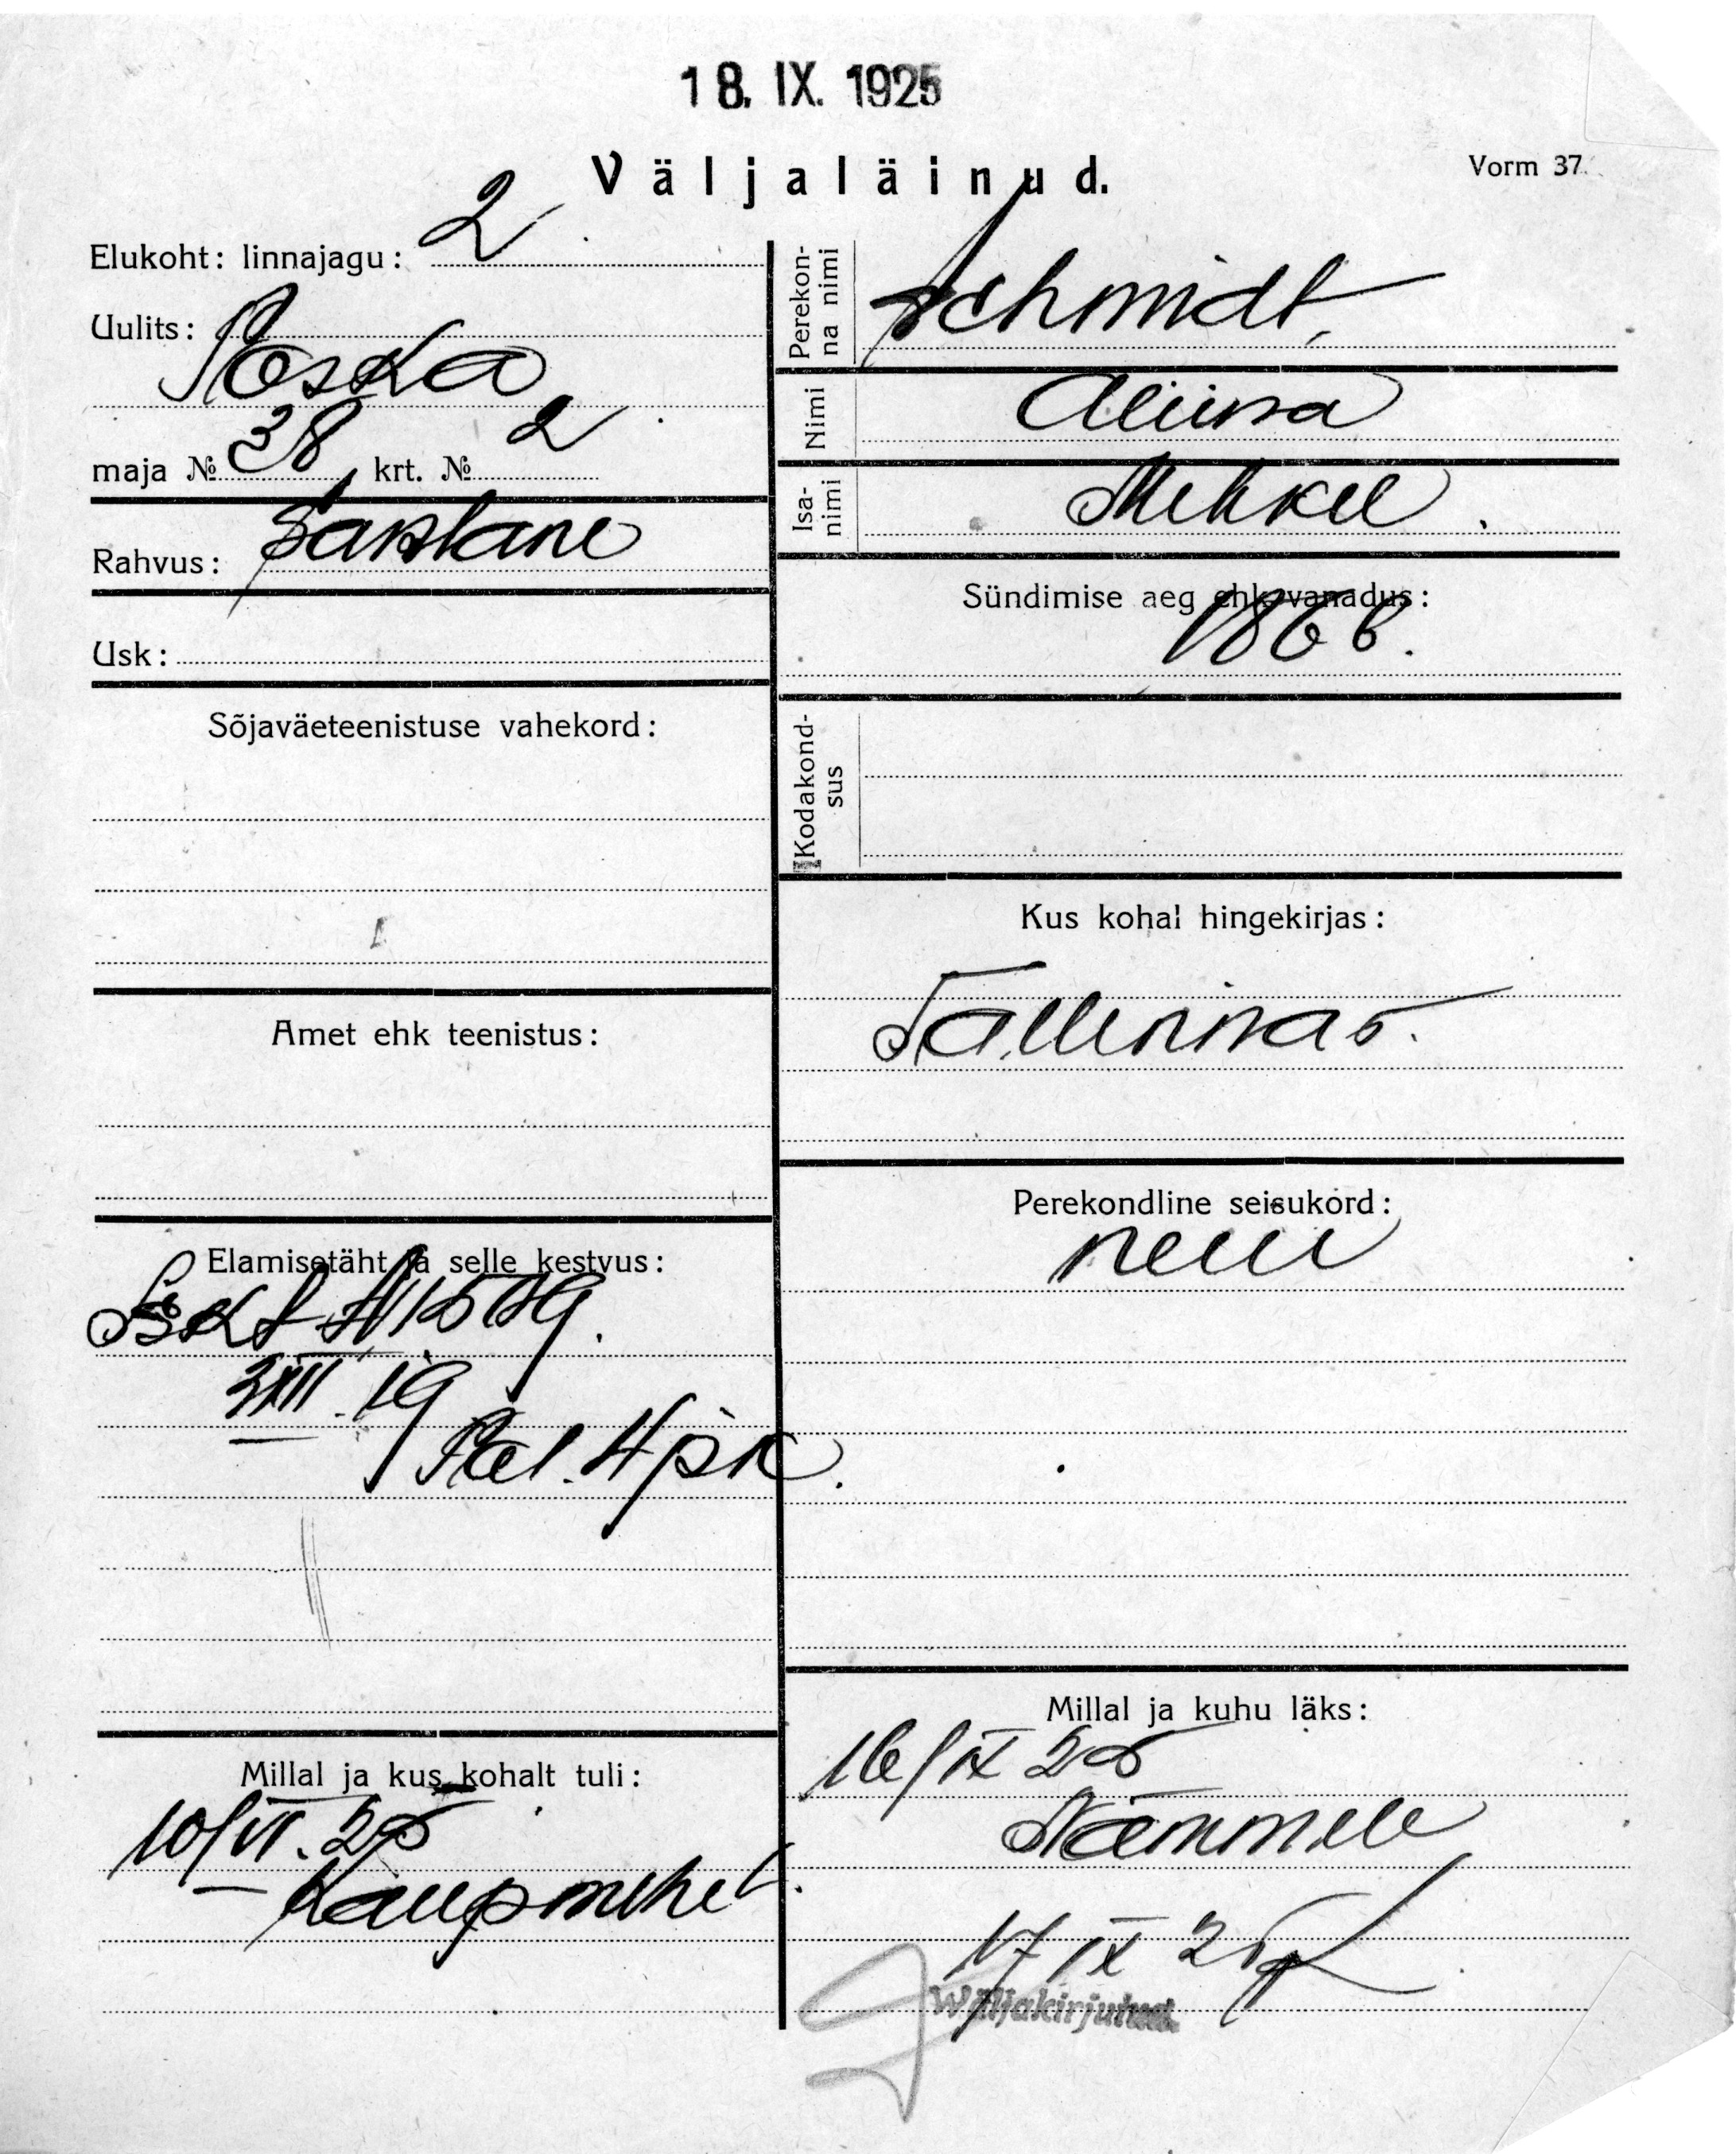 18. IX. 1925
Väljaläinud.
Vorm 37.
Elukoht: linnajagu: 2
Uulits: Poska
maja № 38, krt. № 2
Rahvus: Sakslane
Usk:
Sõjaväeteenistuse vahekord:
Amet ehk teenistus:
Elamisetäht ja selle kestvus:
XII. 19
Tal. 4 jsk.
Millal ja kus kohalt tuli:
10/VI. 25
Kaupmehe t.
Perekonna nimi
Schmidt,
Nimi
Aliina
Isanimi
Mihkel.
Sündimise aeg ehk vanadus:
1866.
Kodakondsus
Kus kohal hingekirjas:
Tallinnas.
Perekondline seisukord:
neiu
Millal ja kuhu läks:
16/IX 25
Nõmmele
17 IX 25
Wäljakirjutud